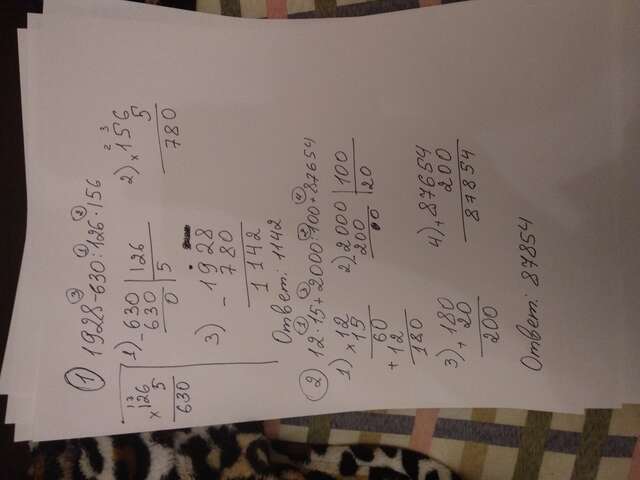 1 1928-630:126·156
1) -630 | 126
630 | 5
0
×126
5
630
2) ×156
5
780
3) - 1928
780
1142
Ответ: 1142
2 12·15+2000:100+87654
1) ×12
15
60
+ 12
180
2) 2000 | 100
200 | 20
0
3) + 180
20
200
4) + 87654
200
87854
Ответ: 87854